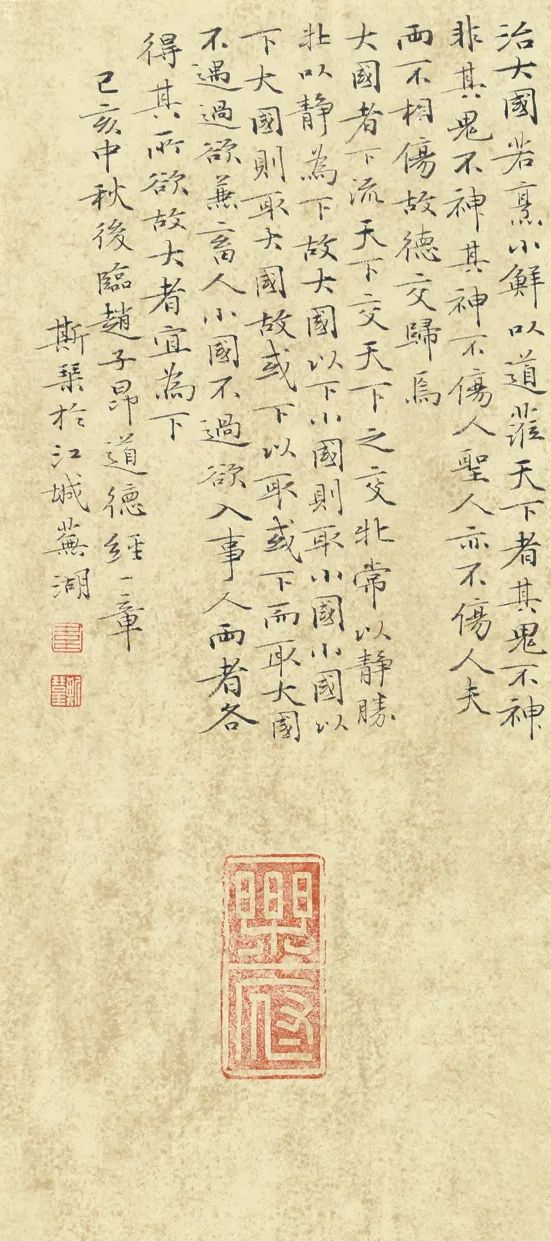 治大國若烹小鮮以道蒞天下者其鬼不神
非其鬼不神其神不傷人聖人亦不傷人夫
兩不相傷故德交歸焉
大國者下流天下交天下之交牝常以静勝
牡以静為下故大國以下小國則取小國小國以
下大國則取大國故或下以取或下而取大國
不過過欲兼畜人小國不過欲入事人兩者各
得其所欲故大者宜為下
己亥中秋後臨趙子昂道德經一章
斯琹於江城蕪湖
樂